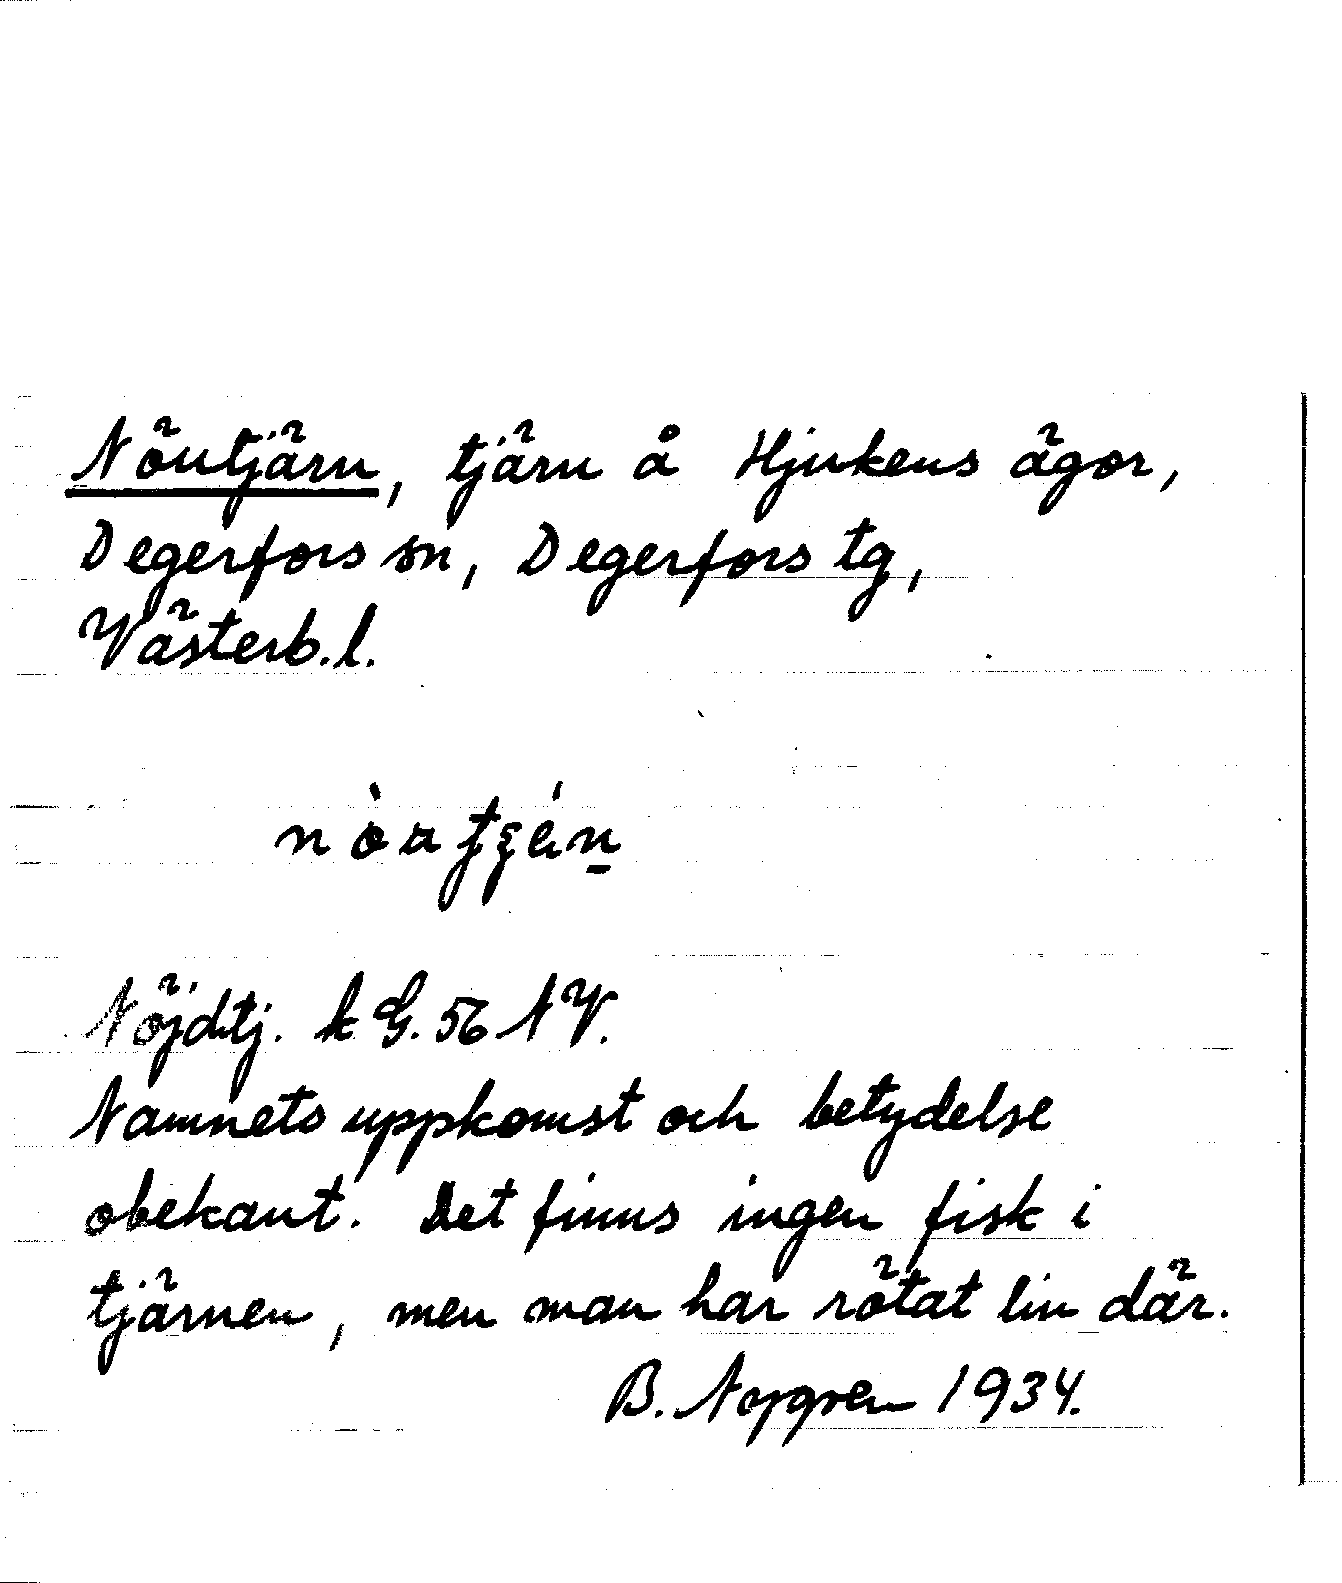 Nöutjärn, tjärn å Hjukens ägor,
Degerfors sn, Degerfors tg,
Västerb. l.
Nöjdtj. k G. 56 NV.
Namnets uppkomst och betydelse
obekant. Det finns ingen fisk i
tjärnen, men man har rötat lin där.
B. Nygren 1934.